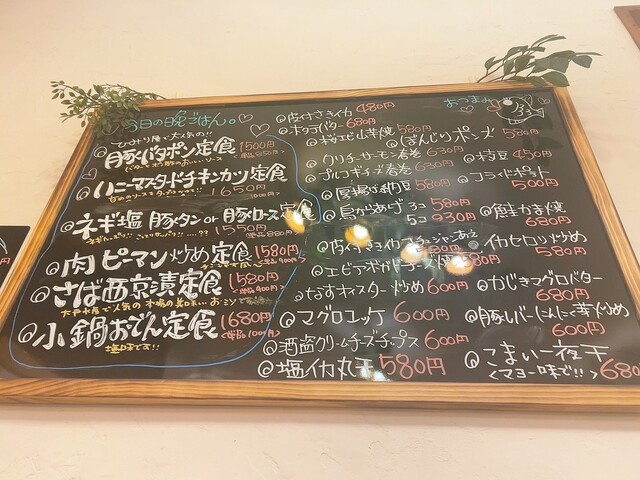 今日の晩ごはん。
豚バタポン定食 1500円
ハニーマスタードチキンカツ定食
1650円
ネギ塩 豚タン or 豚ロース定食
1550円
肉ピーマン炒め定食 1580円
さば西京漬定食 1580円
小鍋おでん定食 1680円
塩味です!!
おつまみ
皮付さきイカ 480円
ホタテバター 680円
580円
ぽんじりポン酢 580円
クリームサーモン春巻 630円
枝豆 450円
プルコギチーズ春巻 630円
フライドポテト
500円
厚揚げ納豆 580円
鳥からあげ 3コ 580円
5コ 930円
鮭かま焼
680円
イカセロリ炒め
580円
なすオイスター炒め 600円
かじきマグロバター
680円
マグロユッケ 600円
豚レバーにんにく芽炒め
600円
酒盗クリームチーズチップス 600円
塩イカ丸干 580円
こまい一夜干
<マヨ一味で!!> 680